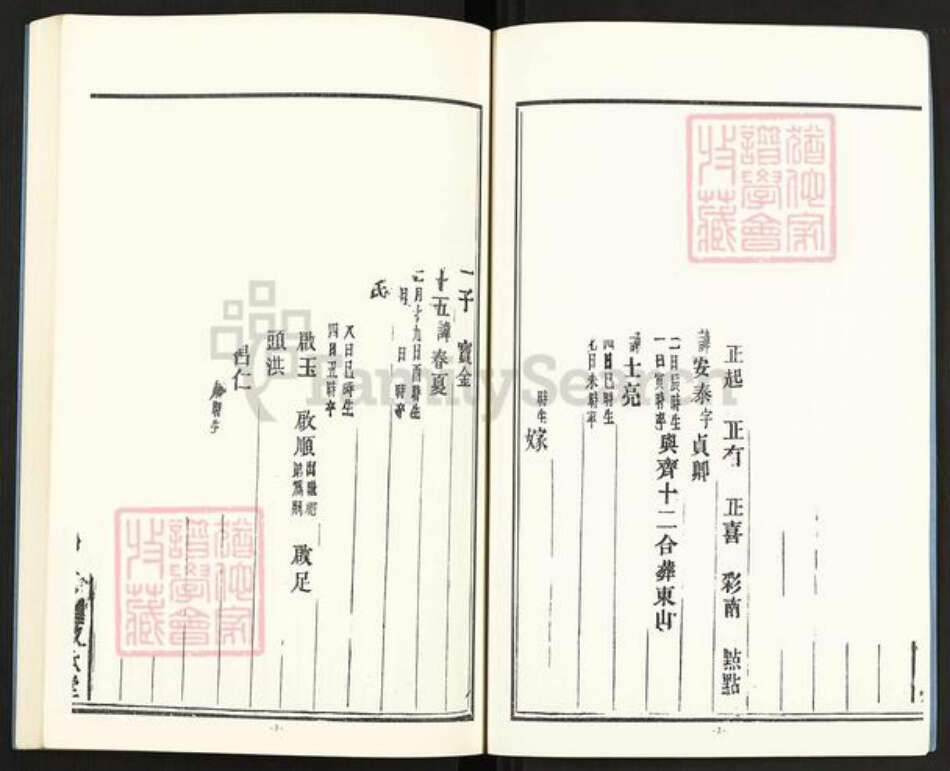 正起 正有 正喜 彩南 點點
諱安泰字貞卿
二日辰時生
一日寅時卒
與齊十二合葬東山
諱士亮
四日巳時生
七日未時卒
時生
嫁
-2-
一子 寶金
十五諱春夏
月十九日酉時生
月 日 時卒
氏
八日巳時生
四日丑時卒
啟玉 啟順 啟足
頭洪
昌仁
時生
-3-
猶他家譜學會收藏
猶他家譜學會收藏
FamilySearch